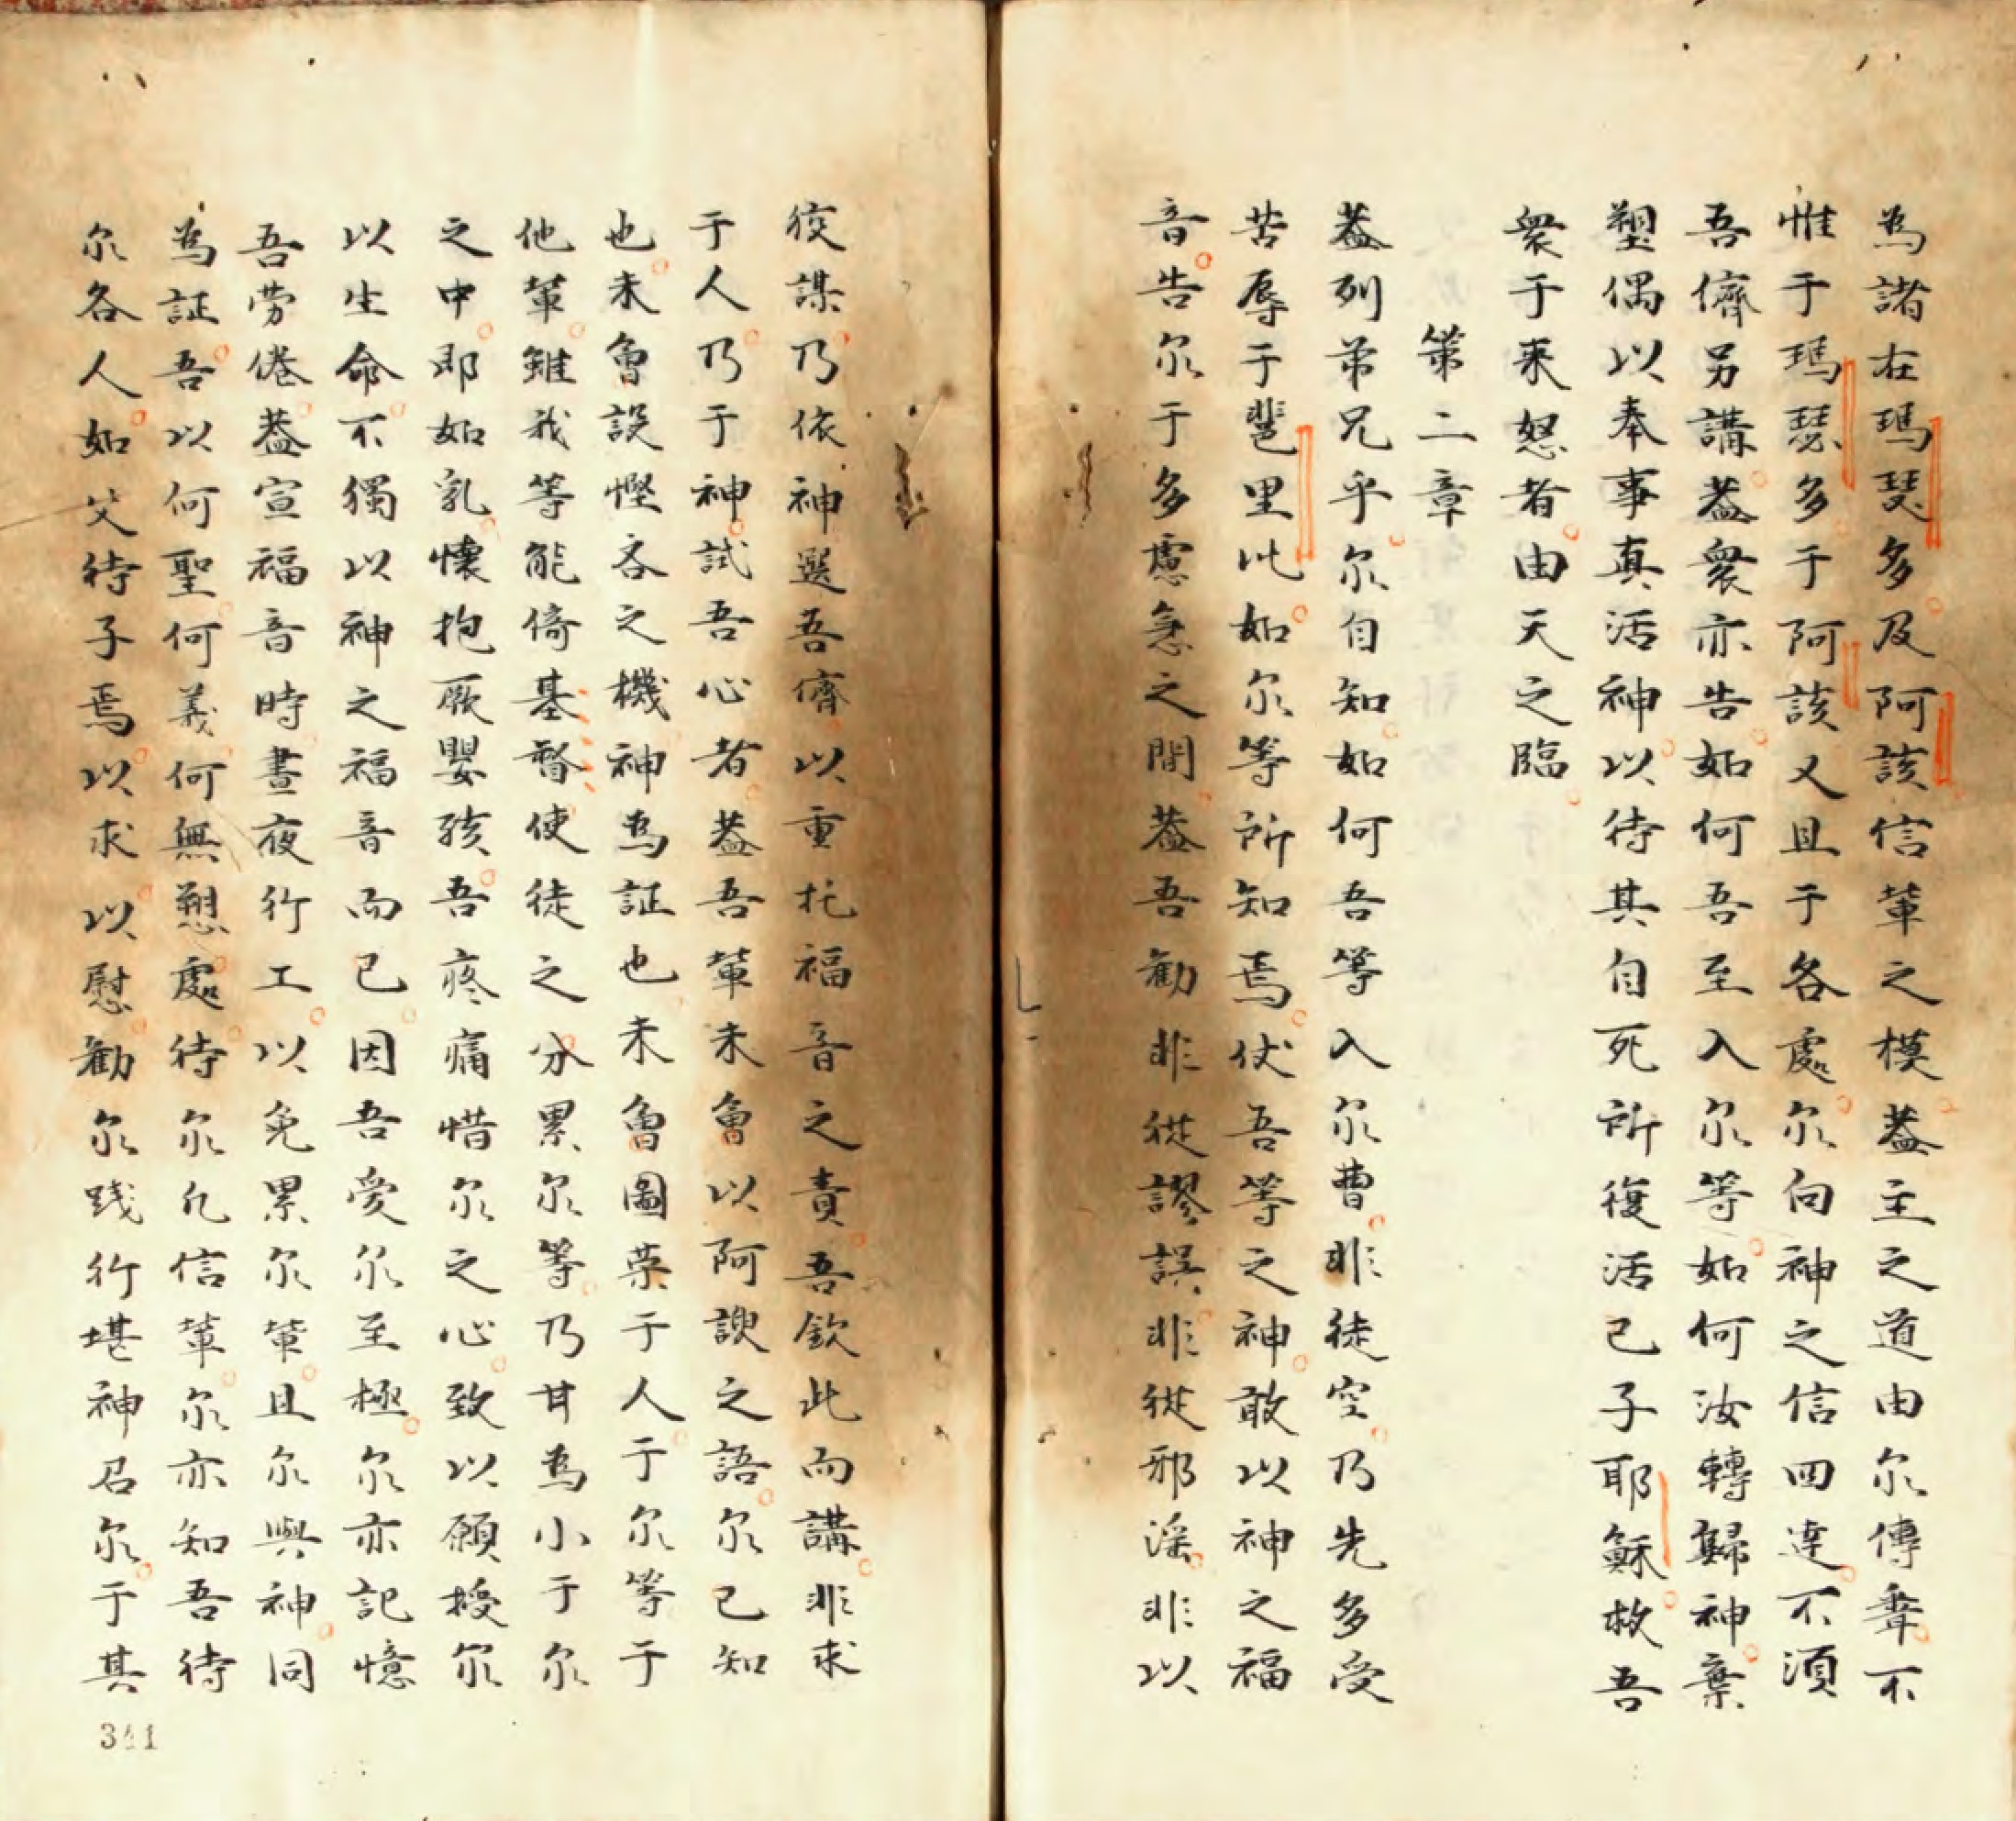 為諸在瑪瑟多及阿該信軰之模葢主之道由尔傳聲不
惟于瑪瑟多于阿該又且于各處尔向神之信四逹不須
吾儕另講葢衆亦告如何吾至入尔等如何汝轉歸神棄
塑偶以奉事真活神以待其自死所復活己子耶穌救吾
衆于来怒者由天之臨
第二章
葢列弟兄乎尔自知如何吾等入尔曹非徒空乃先多受
苦辱于斐里比如尔等所知焉伏吾等之神敢以神之福
音告尔于多慮急之間葢吾勸非從謬誤非從邪滛非以
狡謀乃依神選吾儕以重托福音之責吾欽此而講非求
于人乃于神試吾心者葢吾軰未曾以阿諛之語尔已知
也未曾設慳吝之機神為証也未曾圖荣于人于尔等于
他軰雖我等能倚基督使徒之分累尔等乃甘為小于尔
之中即如乳懷抱厥嬰孩吾疼痛惜尔之心致以願授尔
以生命不獨以神之福音而已因吾愛尔至極尔亦記憶
吾劳倦葢宣福音時晝夜行工以免累尔軰且尔與神同
為証吾以何聖何義何無愬處待尔凢信軰尔亦知吾待
尔各人如父待子焉以求以慰勸尔践行堪神召尔于其
341